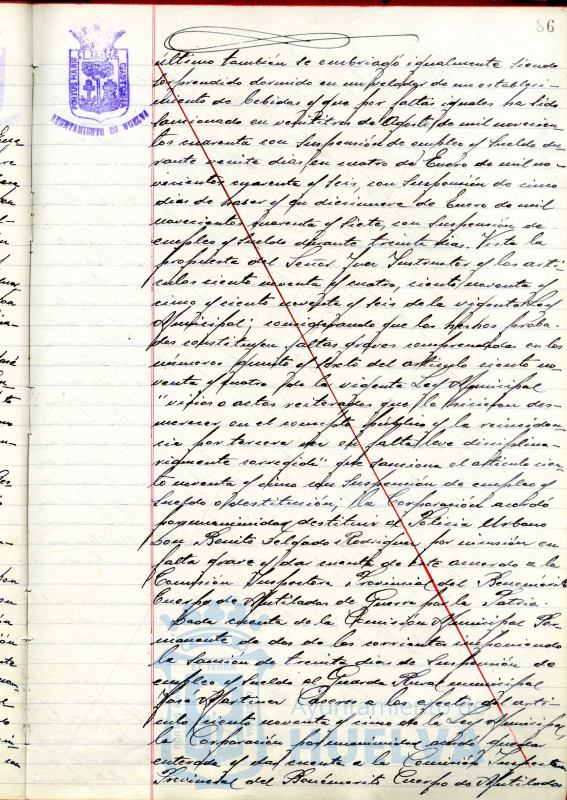 86
AYUNTAMIENTO DE HUELVA
último también se embriagó igualmente siendo
sorprendido dormido en un velador de un estableci-
miento de bebidas y que por faltas iguales ha sido
sancionado en veintitres de Agosto de mil novecien-
tos cuarenta con suspensión de empleo y sueldo du-
rante veinte días, en cuatro de Enero de mil no-
vecientos cuarenta y seis, con suspensión de cinco
días de haber y en diecinueve de Enero de mil
novecientos cuarenta y siete, con suspensión de
empleo y sueldo durante treinta días. Vista la
propuesta del Señor Juez Instructor y los artí-
culos ciento noventa y cuatro, ciento noventa y
cinco y ciento noventa y seis de la vigente Ley
Municipal; considerando que los hechos proba-
dos constituyen faltas graves comprendidas en los
números quinto y sexto del artículo ciento no-
venta y cuatro de la vigente Ley Municipal
"vicios o actos reiterados que le hicieron des-
merecer en el concepto público y la reinciden-
cia por tercera vez en falta leve disciplina-
riamente corregida" que sanciona el artículo cien-
to noventa y cinco con suspensión de empleo y
sueldo o destitución; la Corporación acordó
por unanimidad destituir al Policía Urbano
Don Benito Delgado Rodriguez, por incursión en
falta grave y dar cuenta de este acuerdo a la
Comisión Inspectora Provincial del Benemérito
Cuerpo de Mutilados de Guerra por la Patria.
Dada cuenta de la Comisión Municipal Per-
manente de dos de los corrientes imponiendo
la sanción de treinta días de suspensión de
empleo y sueldo al Guarda Rural municipal
José Martinez a los efectos del artí-
culo ciento noventa y cinco de la Ley Municipal,
la Corporación por unanimidad acordó quedar
enterada y dar cuenta a la Comisión Inspectora
Provincial del Benemérito Cuerpo de Mutilados
Ayuntamiento de
HUELVA